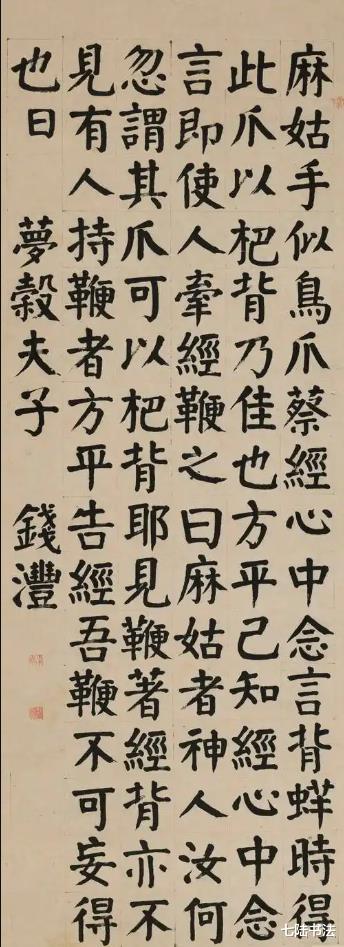 麻姑手似鳥爪蔡經心中念言背蛘時得
此爪以杷背乃佳也方平己知經心中念
言即使人牽經鞭之曰麻姑者神人汝何
忽謂其爪可以杷背耶見鞭著經背亦不
見有人持鞭者方平告經吾鞭不可妄得
也日 夢穀夫子 錢灃
七陆书法